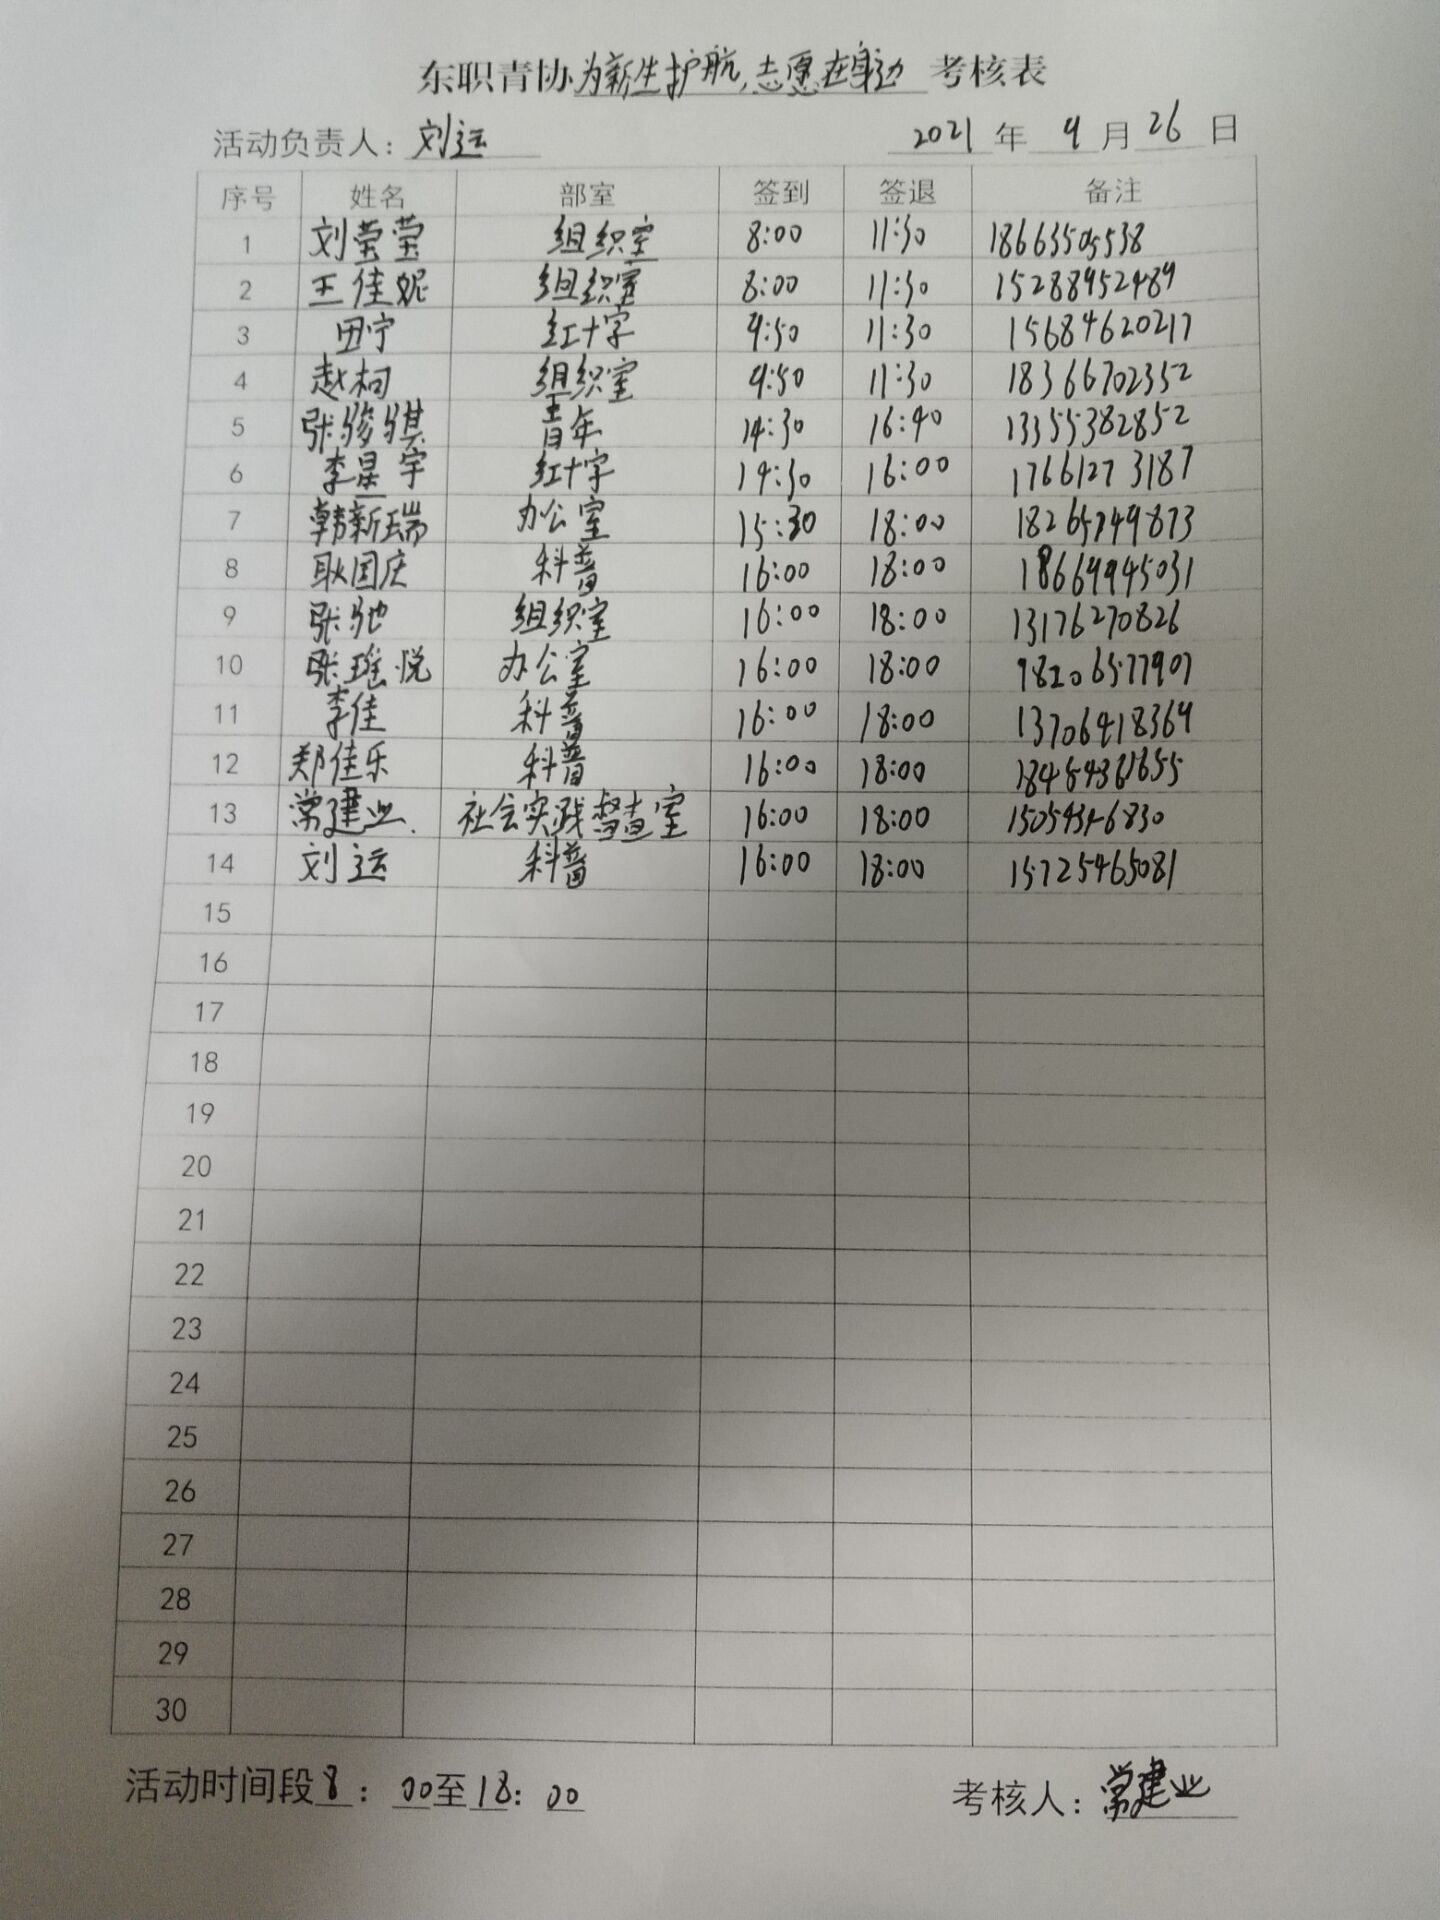 东职青协为新生护航,志愿在身边 考核表
活动负责人: 刘运 2021 年 9 月 26 日
序号 姓名 部室 签到 签退 备注
1 刘莹莹 组织室 8:00 11:30 18663505538
2 王佳妮 组织室 8:00 11:30 15288952489
3 田宁 红十字 9:50 11:30 15684620217
4 赵柯 组织室 9:50 11:30 18366702352
5 张骏骐 青年 14:30 16:40 13355382852
6 李星宇 红十字 14:30 16:00 17661273187
7 韩新瑞 办公室 15:30 18:00 18265749873
8 耿国庆 科普 16:00 18:00 18669945031
9 张驰 组织室 16:00 18:00 13176270826
10 张瑶悦 办公室 16:00 18:00
11 李佳 科普 16:00 18:00 13706418369
12 郑佳乐 科普 16:00 18:00
13 常建业. 社会实践督查室 16:00 18:00
14 刘运 科普 16:00 18:00 15725465081
15
16
17
18
19
20
21
22
23
24
25
26
27
28
29
30
活动时间段8:00至18:00 考核人:常建业